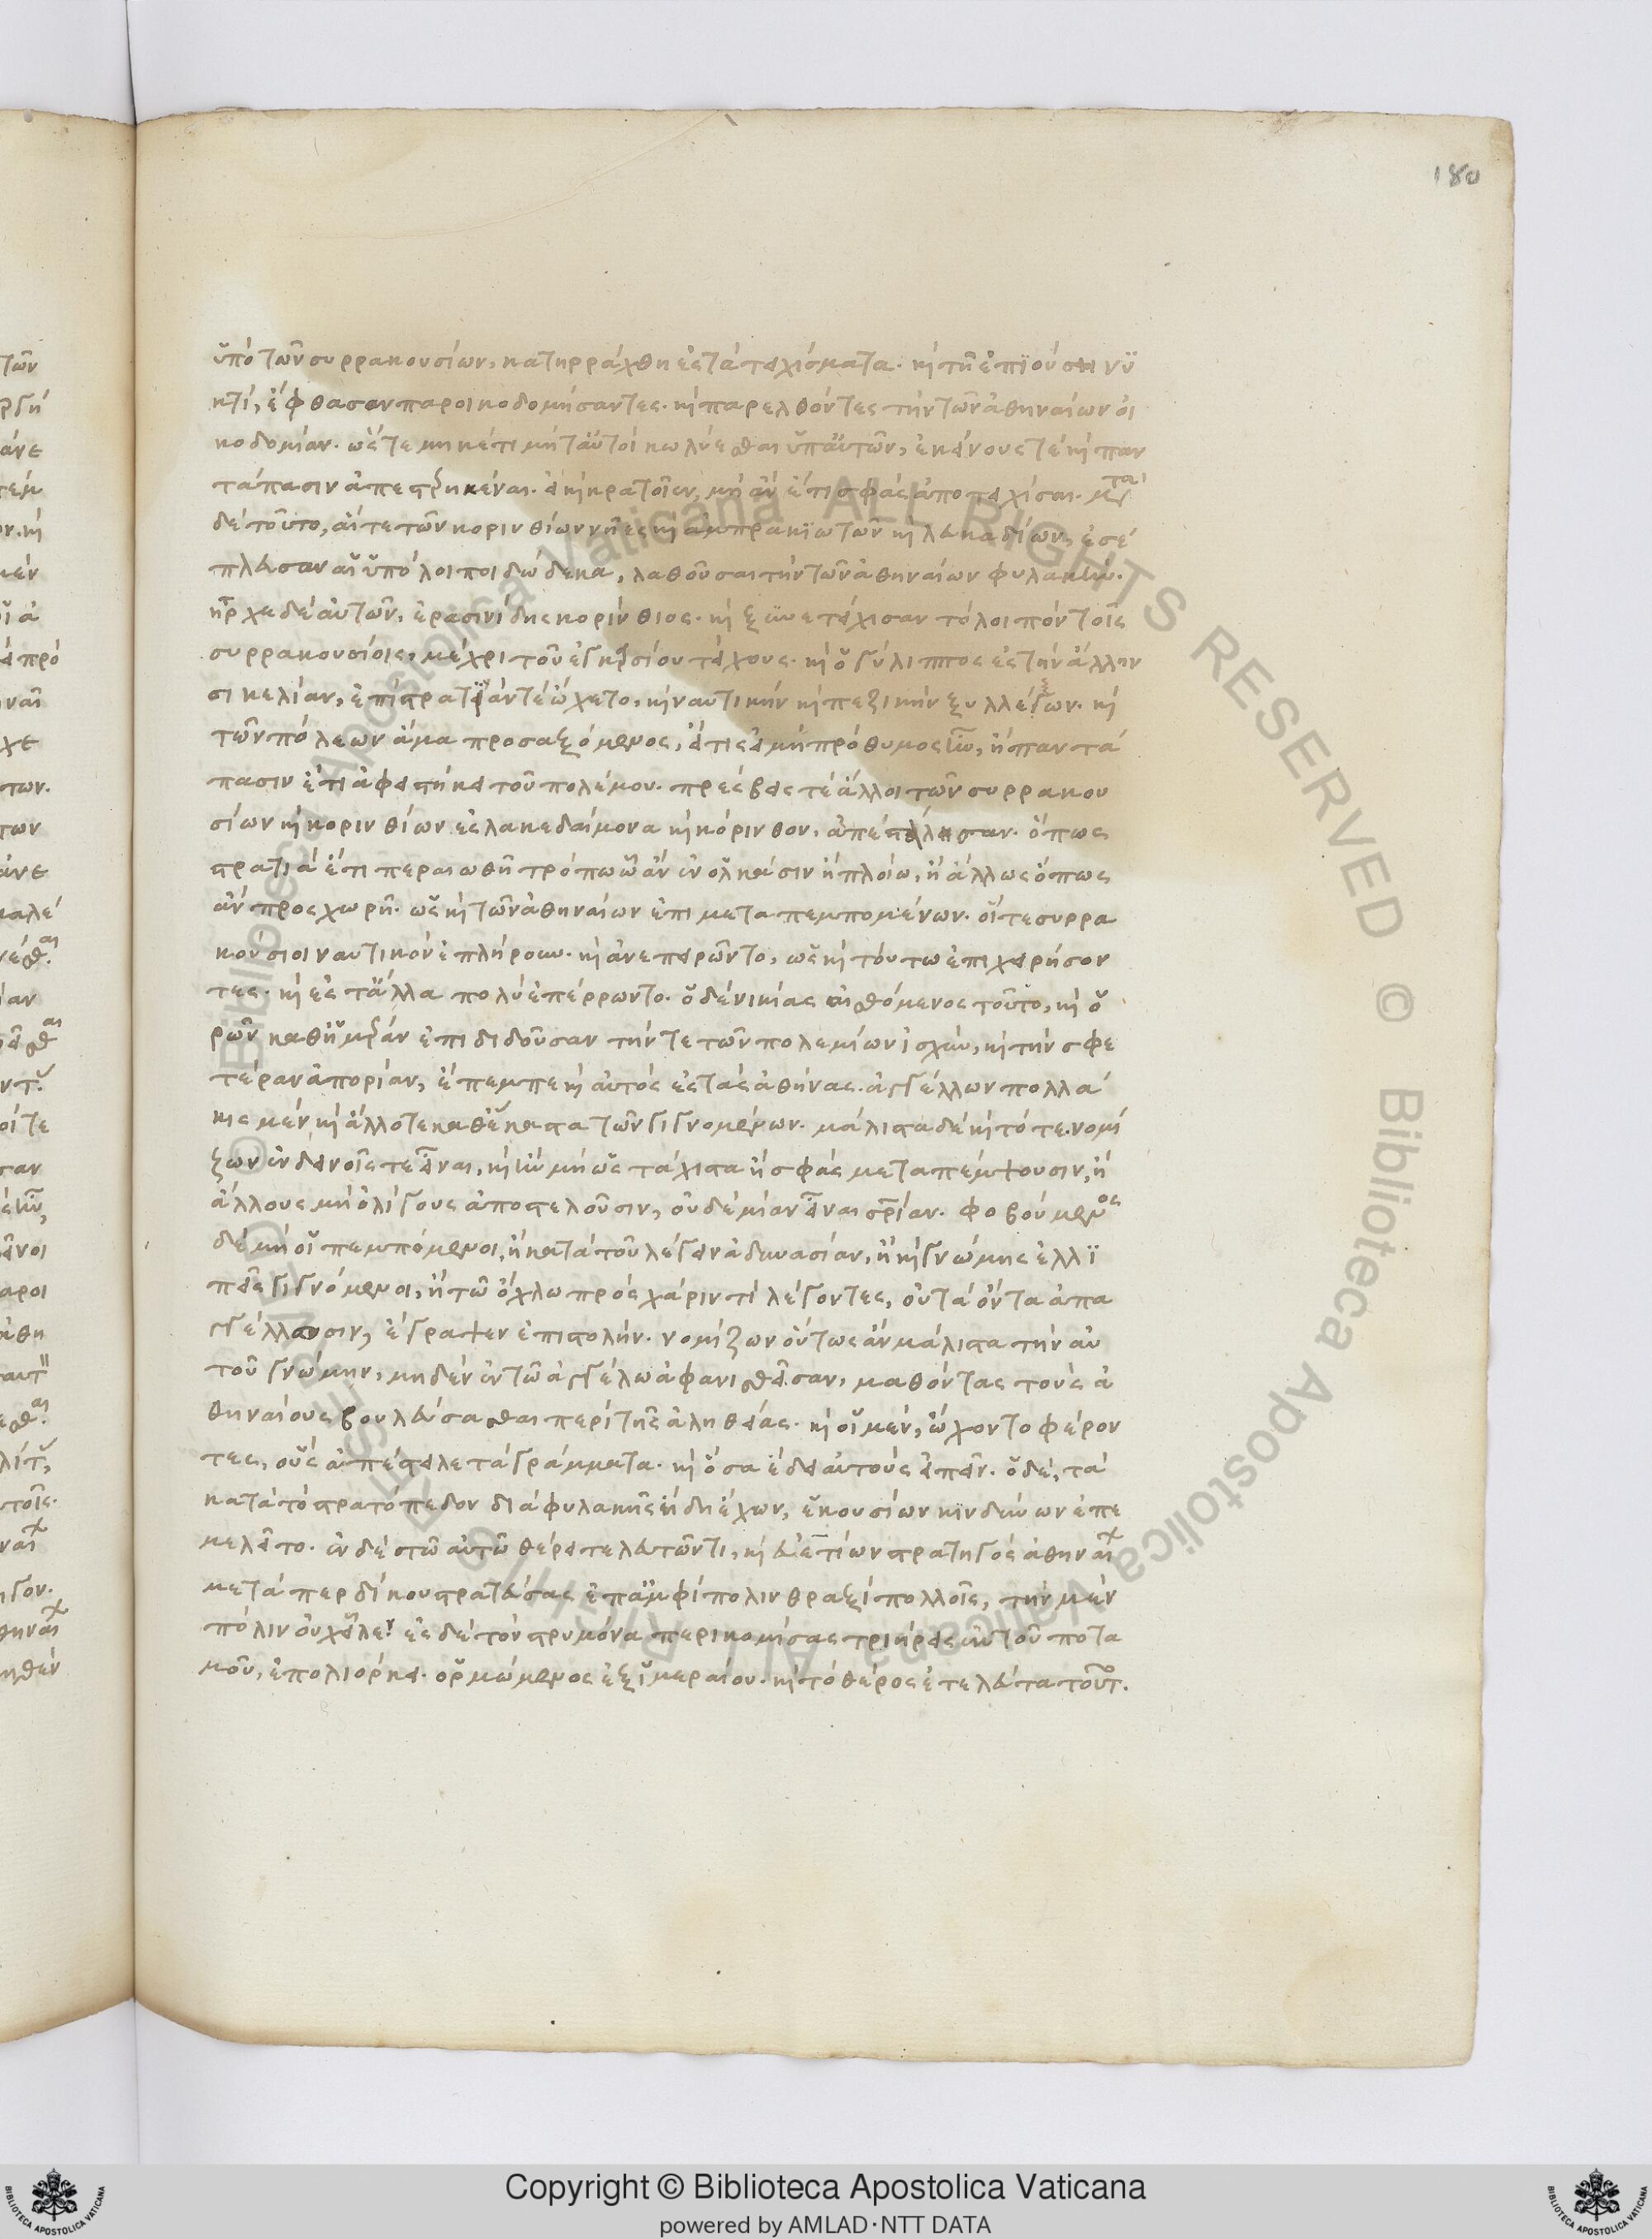 180
ὑπὸ τῶν συρρακουσίων, κατηρράχθη ἐς τὰ τειχίσματα. καὶ τῆ ἐπϊούση νϋ
κτὶ, ἔφθασαν παροικοδομήσαντες. καὶ παρελθόντες τὴν τῶν ἀθηναίων οἰ
κοδομίαν. ὥστε μηκέτι μήτ αὐτοὶ κωλύεσθαι ὑπ αὐτῶν, ἐκείνους τὲ καὶ παν
τάπασιν ἀπεστρηκέναι. εἰ καὶ κρατοῖεν, μὴ ἂν ἔτι σφᾶς ἀποτειχίσαι. μετὰ
δὲ τοῦτο, αἵτε τῶν κορινθίων νῆες καὶ ἀμπρακϊωτῶν καὶ λευκαδίων, ἐσέ
πλευσαν αἱ ὑπόλοιποι δώδεκα, λαθοῦσαι τὴν τῶν ἀθηναίων φυλακήν.
ἦρχε δὲ αὐτῶν, ἐρασινίδης κορίνθιος. καὶ ξυνετείχισαν τὸ λοιπὸν τοῖς
συρρακουσίοις, μέχρι τοῦ ἐγκαρσίου τείχους. καὶ ὁ γύλιππος ἐς τὴν ἄλλην
σικελίαν, ἐπὶ στρατιάν τὲ ὤχετο, καὶ ναυτικὴν καὶ πεζικὴν ξυλλέξων. καὶ
τῶν πόλεων ἅμα προσαξόμενος, εἴ τις ἢ μὴ πρόθυμος ἦν, ἢ παντά
πασιν ἔτι ἀφειστήκει τοῦ πολέμου. πρέσβεις τὲ ἄλλοι τῶν συρρακου
σίων καὶ κορινθίων ἐς λακεδαίμονα καὶ κόρινθον, ἀπεστάλησαν. ὅπως
στρατιὰ ἔτι περαιωθῆ τρόπω ὧ ἂν ἐν ὁλκάσιν ἢ πλοίω, ἢ ἄλλως ὅπως
ἂν προσχωρῆ. ὡς καὶ τῶν ἀθηναίων ἐπιμεταπεμπομένων. οἵτε συρρα
κούσιοι ναυτικὸν ἐπλήρουν. καὶ ἀνεπειρῶντο, ὡς καὶ τούτω ἐπιχειρήσον
τες. καὶ ἐς τἆλλα πολὺ ἐπέρρωντο. ὁ δὲ νικίας αἰσθόμενος τοῦτο, καὶ ὁ
ρῶν καθ ἡμέραν ἐπιδιδοῦσαν τήν τε τῶν πολεμίων ἰσχὺν, καὶ τὴν σφε
τέραν ἀπορίαν, ἔπεμπε καὶ αὐτὸς ἐς τὰς ἀθήνας. ἀγγέλλων πολλά
κις μὲν καὶ ἄλλοτε καθ ἕκαστα τῶν γιγνομένων. μάλιστα δὲ καὶ τότε. νομί
ζων ἐν δεινοῖς τε εἶναι, καὶ ἢν μὴ ὡς τάχιστα ἢ σφᾶς μεταπέμψουσιν, ἢ
ἄλλους μὴ ὀλίγους ἀποστελοῦσιν, οὐδεμίαν εἶναι σωτηρίαν. φοβούμενος
δὲ μὴ οἱ πεμπόμενοι, ἢ κατὰ τοῦ λέγειν ἀδυνασίαν, ἢ καὶ γνώμης ἐλλϊ
πεῖς γιγνόμενοι, ἢ τῶ ὄχλω πρὸς χάριν τὶ λέγοντες, οὐ τὰ ὄντα ἀπα
γγέλλουσιν, ἔγραψεν ἐπιστολήν. νομίζων οὕτως ἂν μάλιστα τὴν αὐ
τοῦ γνώμην, μηδὲν ἐν τῶ ἀγγέλω ἀφανισθεῖσαν, μαθόντας τοὺς ἀ
θηναίους βουλεύσασθαι περὶ τῆς ἀληθείας. καὶ οἱ μὲν, ὤχοντο φέρον
τες, οὓς ἀπέστειλε τὰ γράμματα. καὶ ὅσα ἔδει αὐτοὺς εἰπεῖν. ὁ δὲ, τὰ
κατὰ τὸ στρατόπεδον διὰ φυλακῆς ἤδη ἔχων, ἑκουσίων κινδύνων ἐπε
μελεῖτο. ἐν δὲ τῶ αὐτῶ θέρει τελευτῶντι, καὶ εὐετίων στρατηγὸς ἀθηναίων
μετὰ περδίκου στρατεύσας ἐπ ἀμφίπολιν θραξὶ πολλοῖς, τὴν μὲν
πόλιν οὐχ εἷλεν ἐς δὲ τὸν στρυμόνα περικομίσας τριήρεις ἐκ τοῦ ποτα
μοῦ, ἐπολιόρκει. ὁρμώμενος ἐξ ἱμεραίου. καὶ τὸ θέρος ἐτελεύτα τοῦτο.
Copyright © Biblioteca Apostolica Vaticana
powered by AMLAD·NTT DATA